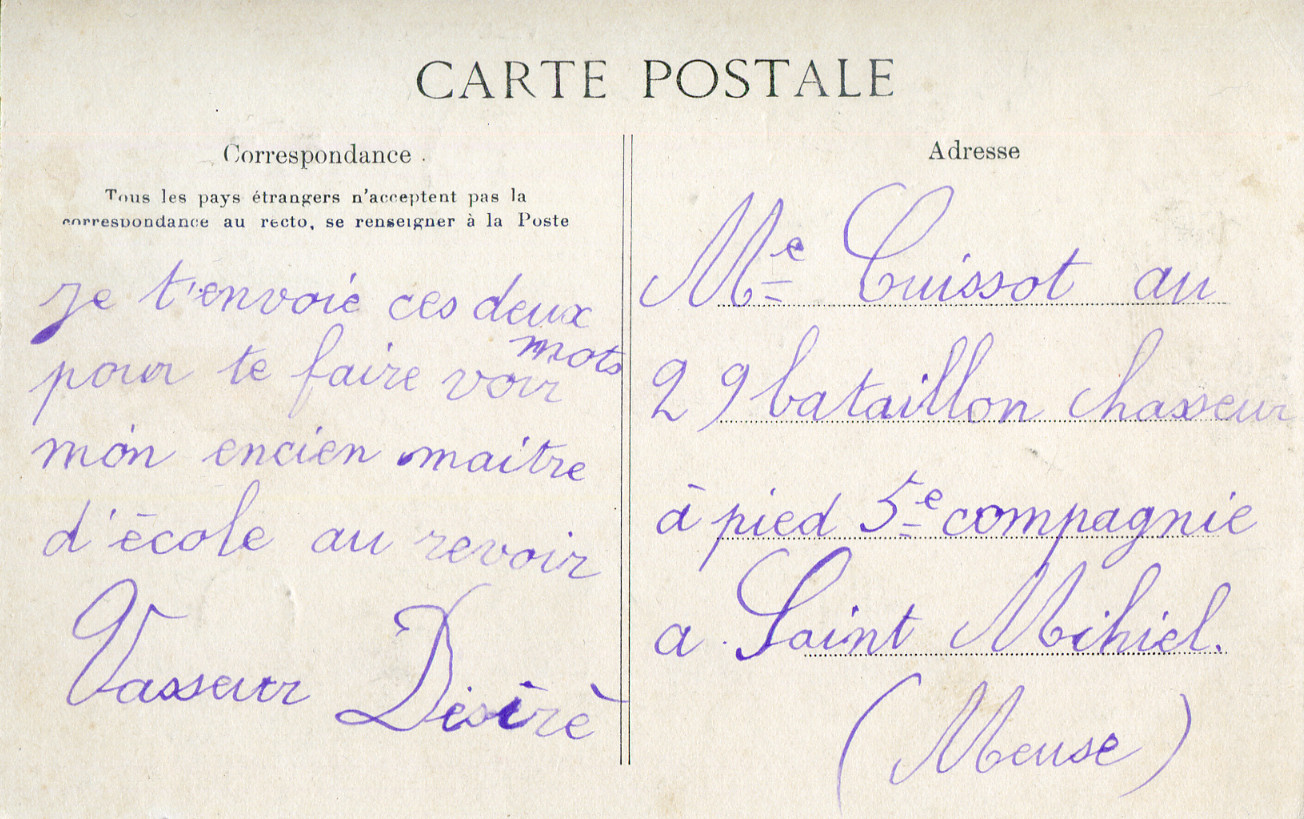 CARTE POSTALE
Correspondance.
Tous les pays étrangers n'acceptent pas la
correspondance au recto, se renseigner à la Poste
je t'envoie ces deux
mots
pour te faire voir
mon encien maitre
d'école au revoir
Vasseur Désiré
Adresse
Me Cuissot au
29 bataillon chasseur
à pied 5e compagnie
a Saint Mihiel.
(Meuse)